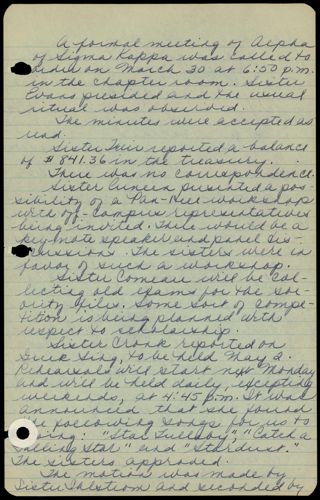 A formal meeting of Alpha
of Sigma Kappa was called to
order on March 30 at 6:50 p.m.
in the chapter room. Sister
Evans presided and the usual
ritual was observed.
The minutes were accepted as
read.
Sister Muir reported a balance
of $841.36 in the treasury.
There was no correspondence.
Sister Cuneen presented a pos-
sibility of a Pan-Hell workshop
with off-campus representatives
being invited. There would be a
key-note speaker and panel dis-
cussions. The sisters were in
favor of such a workshop.
Sister Comeau will be col-
lecting old exams for the sor-
ority files. Some sort of compe-
tition is being planned with
respect to scholarship.
Sister Cronk reported on
Greek Sing, to be held May 2.
Rehearsals will start next Monday
and will be held daily, excepting
weekends, at 4:45 p.m. It was
announced that she found
the following songs for us to
sing: "Star Lullaby," "Catch a
Falling Star" and "Stardust."
The sisters approved.
The motion was made by
Sister and seconded by